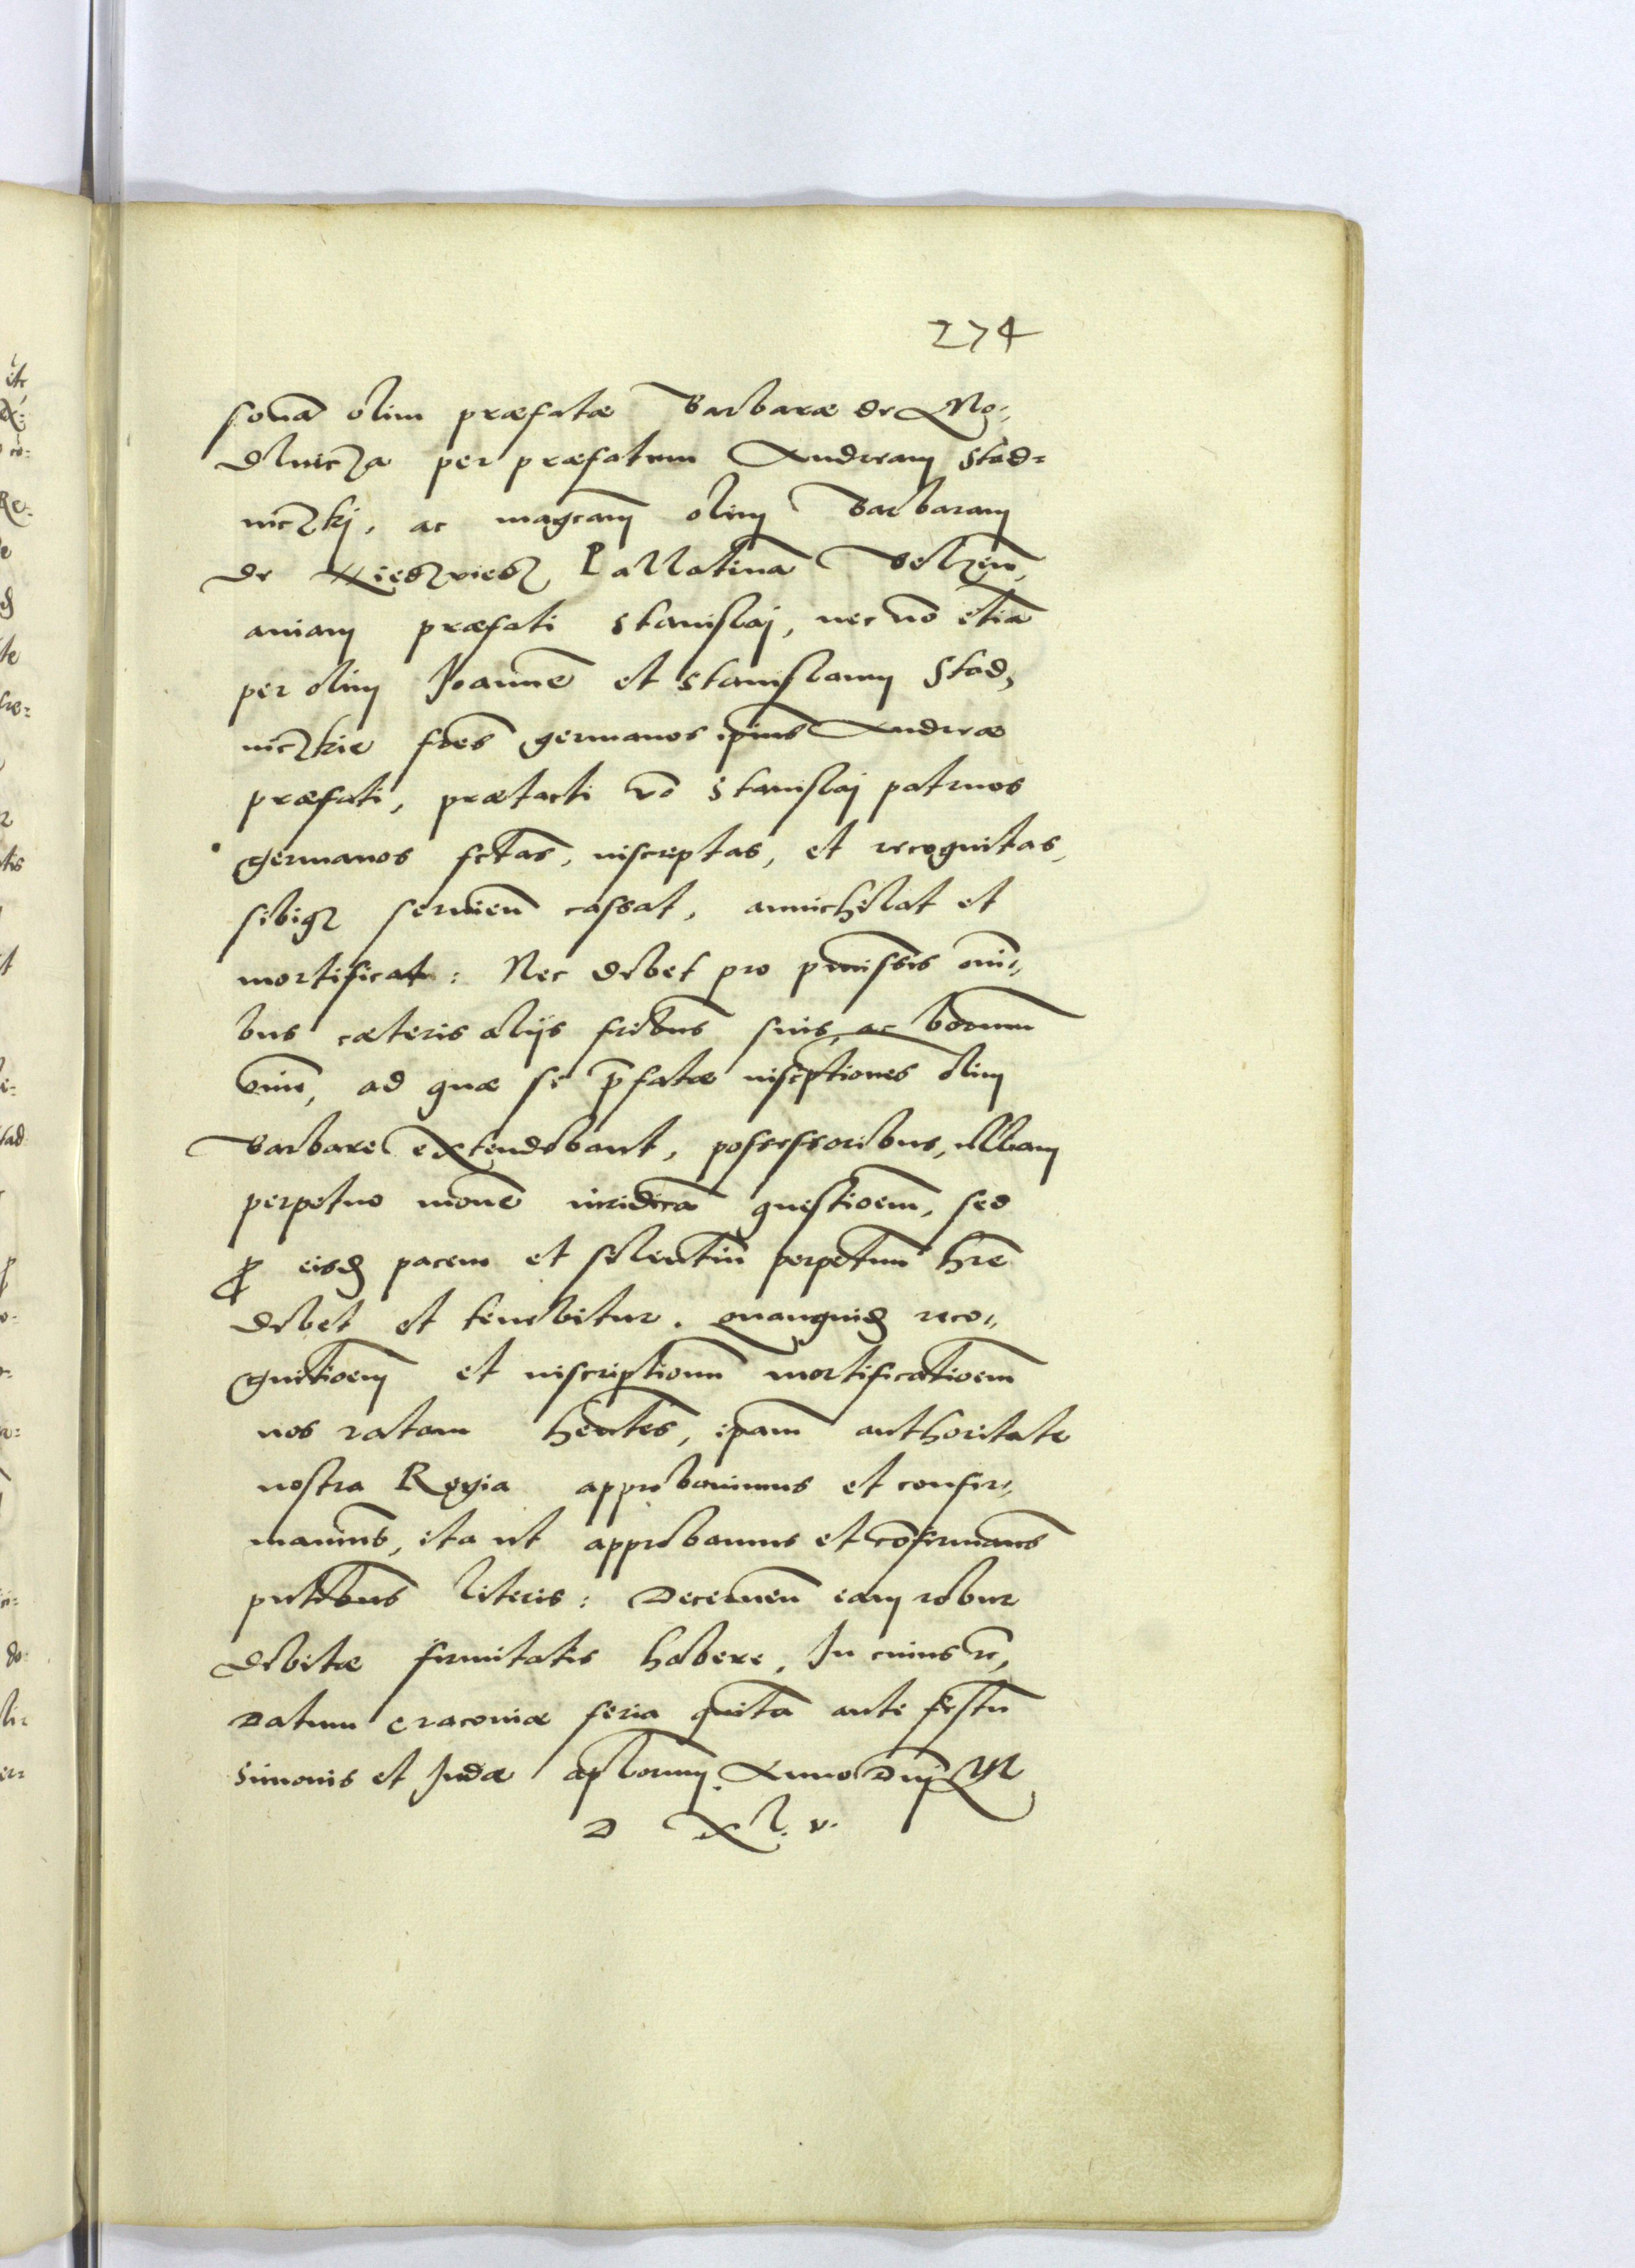 274
sonã olim præfatæ Barbaræ de Mo=
dlnicza per præfatum Andream Stad=
niczkj, ac magcam olim Barbaram
de Xieszviesz Pallatinã Belzen̄,
aviam præfati Stanislaj, nec nõ etiã
per olim Joannẽ et Stanislaum Stad,
niczkie fr̃es germanos ip̃ius Andreæ
præfati, prætacti võ Stanislaj patruos
germanos fctas, inscriptas, et recognitas,
sibiq3 servien̄ cassat, annichilat et
mortificat: Nec debet pro p̃missis om̃i=
bus cæteris alijs fribus suis, ac bonorum
om̃iũ, ad quæ se p̃fatæ inscptiones olim
Barbare extendebant, possessoribus, ullam
perpetuo movẽ iuridicã questioem, sed
p̱ eisd pacem et silentiũ perpetuum hr̃e
debet et tenebitur. quanquid reco=
gnitioem et inscriptionũ mortificatioem
nos ratam hẽntes, ip̃am authoritate
nostra Regia approbavimus et confir=
mavimus, ita ut approbamus et cõfirmamus
pntibus literis: Decernen̄ eam robur
debitæ firmitatis habere, In cuius rẽ,
Datum Cracoviæ feria quinta ante festũ
Simonis et Judæ aplorum. Anno Dnj M
D Xl. v.